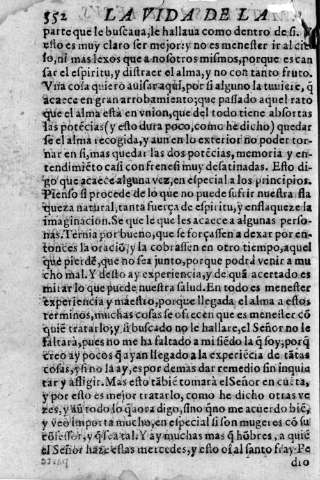 552 LA VIDA DE LA
parte que le buscaua, le hallaua como dentro de si. Y
esto es muy claro ser mejor: y no es menester ir al cie
lo, ni mas lexos que a nosotros mismos, porque es can
sar el espiritu, y distraer el alma, y no con tanto fruto.
Vna cosa quiero auisar aqui, por si alguno la tuuiere, q̃
acaece en gran arrobamiento; que passado aquel rato
que el alma està en vnion, que del todo tiene absortas
las potẽcias (y esto dura poco, como he dicho) quedar
se el alma recogida, y aun en lo exterior no poder tor-
nar en si, mas quedar las dos potẽcias, memoria y en-
tendimiẽto casi con frenesi muy desatinadas. Esto di-
go que acaece alguna vez, en especial a los principios.
Pienso si procede de lo que no puede sufrir nuestra fla
queza natural, tanta fuerça de espiritu, y enflaquece la
imaginacion. Se que le que les acaece a algunas perso-
nas. Ternia por bueno, que se forçassen a dexar por en-
tonces la oraciõ, y la cobrassen en otro tiempo, aquel
que pierdẽ, que no sea junto, porque podrà venir a mu
cho mal. Y desto ay experiencia, y de quã acertado es
mirar lo que puede nuestra salud. En todo es menester
experiencia y maestro, porque llegada el alma a estos
terminos, muchas cosas se ofrecen que es menester cõ
quiẽ tratarlo, y si buscado no le hallare, el Señor no le
faltarà, pues no me ha faltado a mi siẽdo la q̃ soy, porq̃
creo ay pocos q̃ ayan llegado a la experiẽcia de tãtas
cosas, y si no la ay, es por demas dar remedio sin inquie
tar y afligir. Mas esto tãbiẽ tomarà el Señor en cuẽta,
y por esto es mejor tratarlo, como he dicho otras ve
zes, y aũ todo lo q̃ aora digo, sino q̃ no me acuerdo biẽ,
y veo importa mucho, en especial si son mugeres cõ su
cõfessor, y q̃ sea tal. Y ay muchas mas q̃ hõbres, a quiẽ
el Señor haze estas mercedes, y esto oì al santo fray Pe
dro